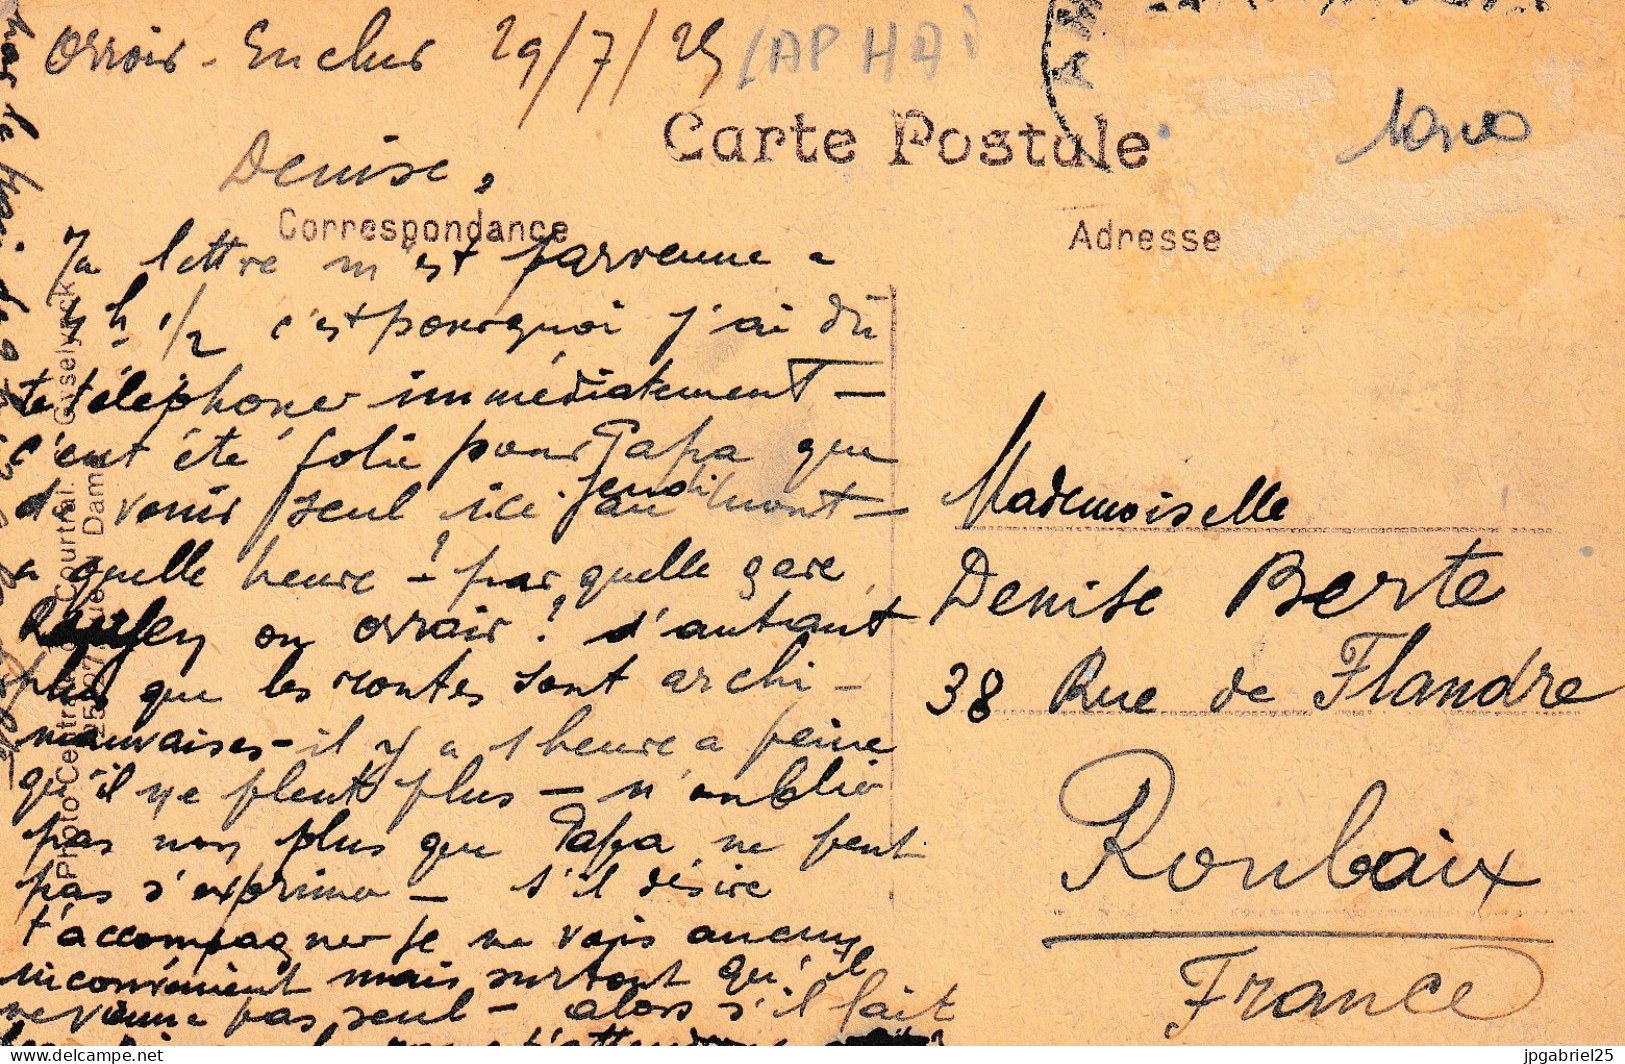 Orroir - Enclus 29/7/25
Carte Postale
Denise,
Correspondance
Adresse
Ta lettre m'est parvenue a
4h 1/2 c'est pourquoi j'ai dû
te téléphoner immédiatement -
c'eut été folie pour Papa que
de venir seul ici jeudi au mont -
a quelle heure ? - par quelle gare,
ou orroir ? d'autant
plus que les routes sont archi -
mauvaises - il y a 1 heure a peine
qu'il ne pleut plus - n'oublie
pas non plus que Papa ne peut
pas s'exprimer - s'il désire
t'accompagner je ne vois aucun
inconvénient mais surtout qu'il
ne vienne pas seul - alors s'il fait
Mademoiselle
Denise Berte
38 Rue de Flandre
Roubaix
France
jpgabriel25